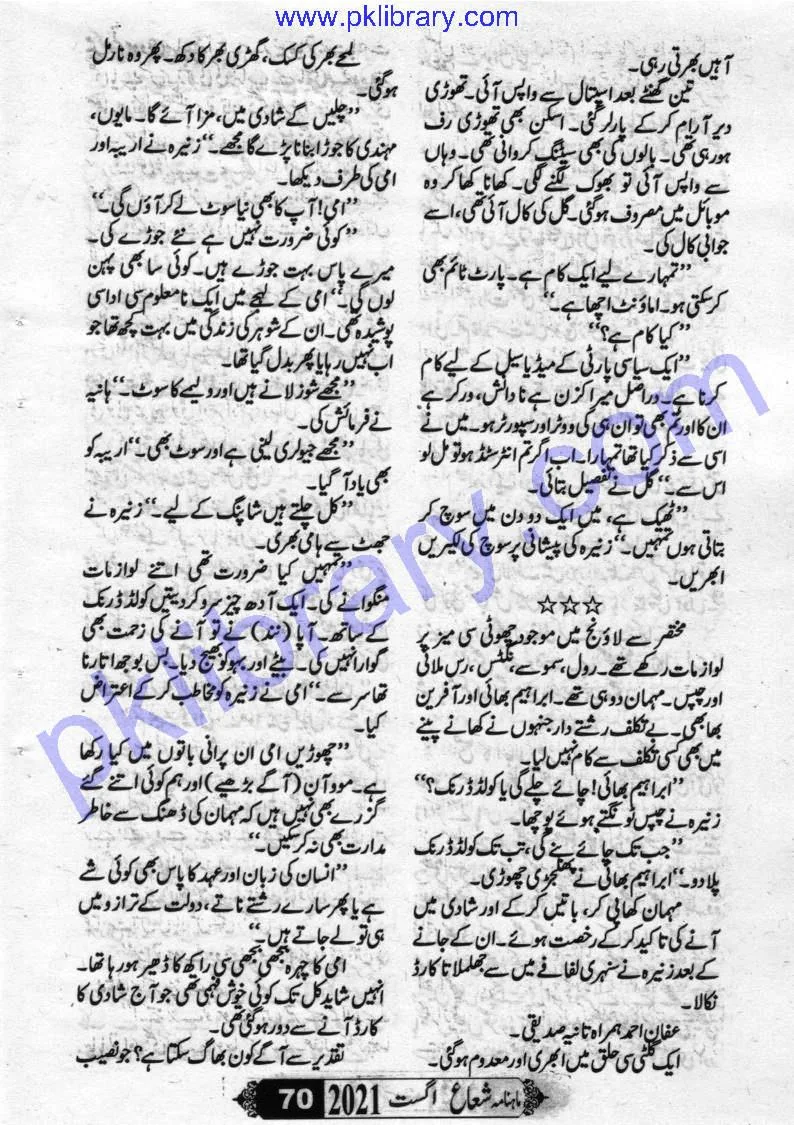 www.pklibrary.com
آہیں بھرتی رہی۔
تین گھنٹے بعد اسپتال سے واپس آئی۔ تھوڑی
دیر آرام کر کے پارلر گئی۔ اسکن بھی تھوڑی رف
ہو رہی تھی۔ بالوں کی بھی سیٹنگ کروانی تھی۔ وہاں
سے واپس آئی تو بھوک لگنے لگی۔ کھانا کھا کر وہ
موبائل میں مصروف ہو گئی۔ گل کی کال آئی تھی، اسے
جوابی کال کی۔
’’تمہارے لیے ایک کام ہے۔ پارٹ ٹائم بھی
کر سکتی ہو۔ اماؤنٹ اچھا ہے۔‘‘
’’کیا کام ہے؟‘‘
’’ایک سیاسی پارٹی کے میڈیا سیل کے لیے کام
کرنا ہے۔ دراصل میرا کزن ہے نا دانش، ورکر ہے
ان کا اور تم بھی تو ان ہی کی ووٹر اور سپورٹر ہو۔ میں نے
اسی سے ذکر کیا تھا تمہارا۔ اب اگر تم انٹرسٹڈ ہو تو مل لو
اس سے۔‘‘ گل نے تفصیل بتائی۔
’’ٹھیک ہے، میں ایک دو دن میں سوچ کر
بتاتی ہوں تمہیں۔‘‘ زنیرہ کی پیشانی پر سوچ کی لکیریں
ابھریں۔
☆☆☆
مختصر سے لاؤنج میں موجود چھوٹی سی میز پر
لوازمات رکھے تھے۔ رول، سموسے، نگٹس، رس ملائی
اور چپس۔ مہمان دو ہی تھے۔ ابراہیم بھائی اور آفرین
بھابھی۔ بے تکلف رشتے دار جنہوں نے کھانے پینے
میں بھی کسی تکلف سے کام نہیں لیا۔
’’ابراہیم بھائی! چائے چلے گی یا کولڈ ڈرنک؟‘‘
زنیرہ نے چپس ٹونگتے ہوئے پوچھا۔
’’جب تک چائے بنے گی، تب تک کولڈ ڈرنک
پلا دو۔‘‘ ابراہیم بھائی نے پھلجڑی چھوڑی۔
مہمان کھا پی کر، باتیں کر کے اور شادی میں
آنے کی تاکید کر کے رخصت ہوئے۔ ان کے جانے
کے بعد زنیرہ نے سنہری لفافے میں سے جھلملاتا کارڈ
نکالا۔
عفان احمد ہمراہ ثانیہ صدیقی۔
ایک گلٹی سی حلق میں ابھری اور معدوم ہو گئی۔
لمحے بھر کی کسک، گھڑی بھر کا دکھ۔ پھر وہ نارمل
ہو گئی۔
’’چلیں گے شادی میں، مزا آئے گا۔ مایوں،
مہندی کا جوڑا بنانا پڑے گا مجھے۔‘‘ زنیرہ نے اریبہ اور
امی کی طرف دیکھا۔
’’امی! آپ کا بھی نیا سوٹ لے کر آؤں گی۔‘‘
’’کوئی ضرورت نہیں ہے نئے جوڑے کی۔
میرے پاس بہت جوڑے ہیں۔ کوئی سا بھی پہن
لوں گی۔‘‘ امی کے لہجے میں ایک نامعلوم سی اداسی
پوشیدہ تھی۔ ان کے شوہر کی زندگی میں بہت کچھ تھا جو
اب نہیں رہا یا پھر بدل گیا تھا۔
’’مجھے شوز لانے ہیں اور ولیمے کا سوٹ۔‘‘ ہانیہ
نے فرمائش کی۔
’’مجھے جیولری لینی ہے اور سوٹ بھی۔‘‘ اریبہ کو
بھی یاد آ گیا۔
’’کل چلتے ہیں شاپنگ کے لیے۔‘‘ زنیرہ نے
جھٹ سے ہامی بھری۔
’’تمہیں کیا ضرورت تھی اتنے لوازمات
منگوانے کی۔ ایک آدھ چیز سرو کر دیتیں کولڈ ڈرنک
کے ساتھ۔ آپا (نند) نے تو آنے کی زحمت بھی
گوارا نہیں کی۔ بیٹے اور بہو کو بھیج دیا۔ بس بوجھ اتارنا
تھا سر سے۔‘‘ امی نے زنیرہ کو مخاطب کر کے اعتراض
کیا۔
’’چھوڑیں امی ان پرانی باتوں میں کیا رکھا
ہے۔ موو آن (آگے بڑھیے) اور ہم کوئی اتنے گئے
گزرے بھی نہیں ہیں کہ مہمان کی ڈھنگ سے خاطر
مدارت بھی نہ کر سکیں۔‘‘
’’انسان کی زبان اور عہد کا پاس بھی کوئی شے
ہے یا پھر سارے رشتے ناتے، دولت کے ترازو میں
ہی تولے جاتے ہیں۔‘‘
امی کا چہرہ بجھی بجھی سی راکھ کا ڈھیر ہو رہا تھا۔
انہیں شاید کل تک کوئی خوش فہمی تھی جو آج شادی کا
کارڈ آنے سے دور ہو گئی تھی۔
تقدیر سے آگے کون بھاگ سکتا ہے؟ جو نصیب
ماہنامہ شعاع اگست 2021 70
pklibrary.com